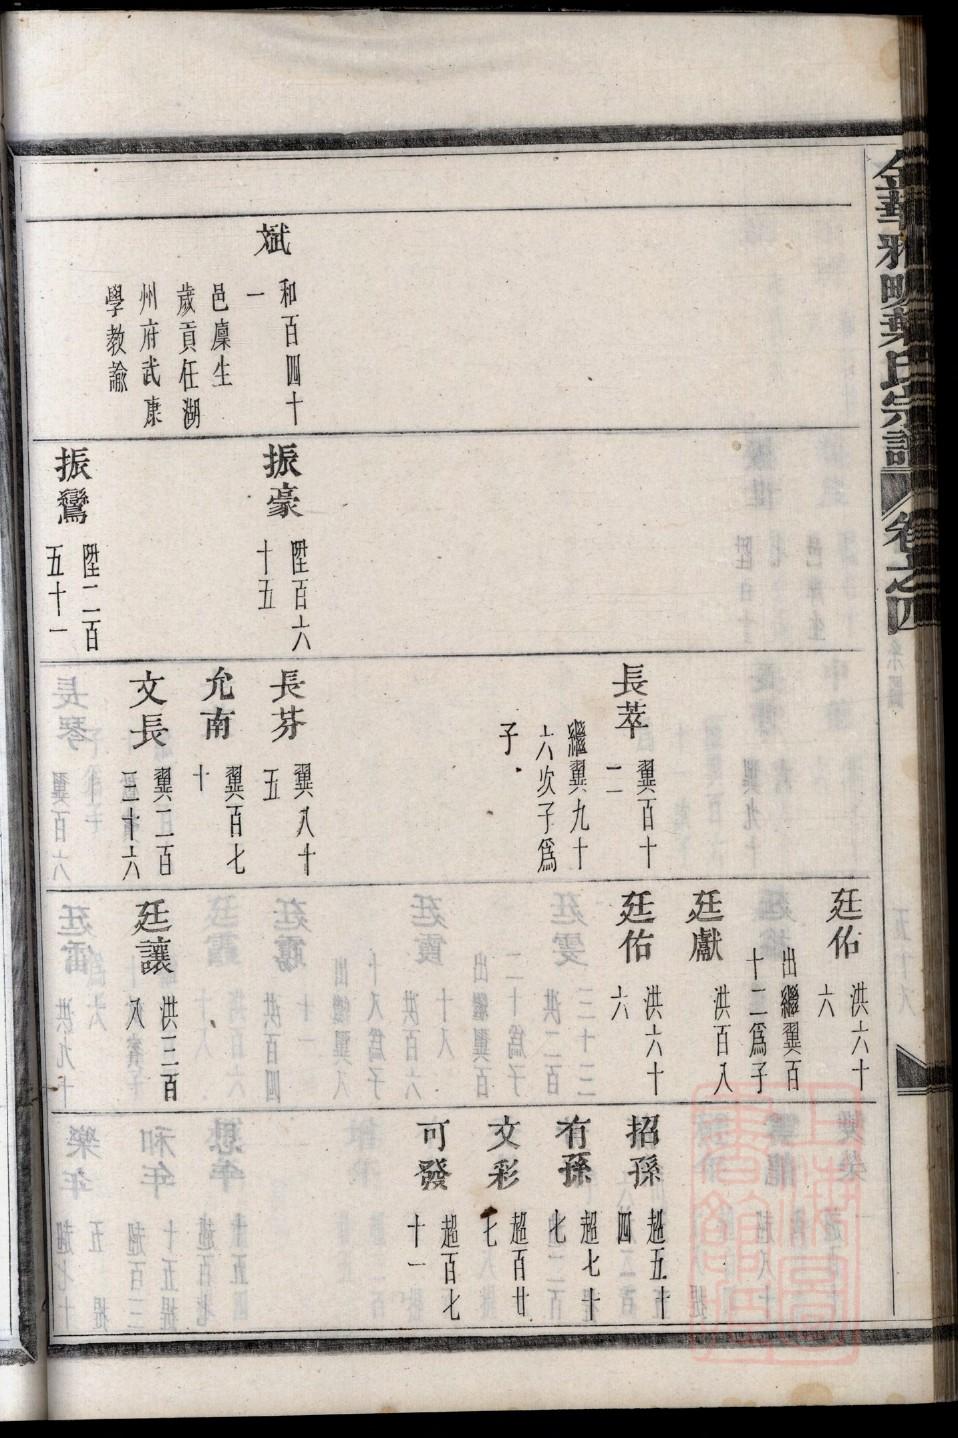 金華雅明葉氏宗譜 卷之四
斌
和百四十
一
邑廩生
歲貢任湖
州府武康
學教諭
振豪
陞百六
十五
振鸞
陞二百
五十一
長萃
翼百十
二
繼翼九十
六次子爲
子
長芬
翼八十
五
允南
翼百七
十
文長
翼二百
三十六
廷佑
洪六十
六
出繼翼百
十二爲子
廷獻
洪百八
廷佑
洪六十
六
廷讓
洪三百
八
招孫
超五十
四
有孫
超七十
七
文彩
超百廿
七
可發
超百七
十一